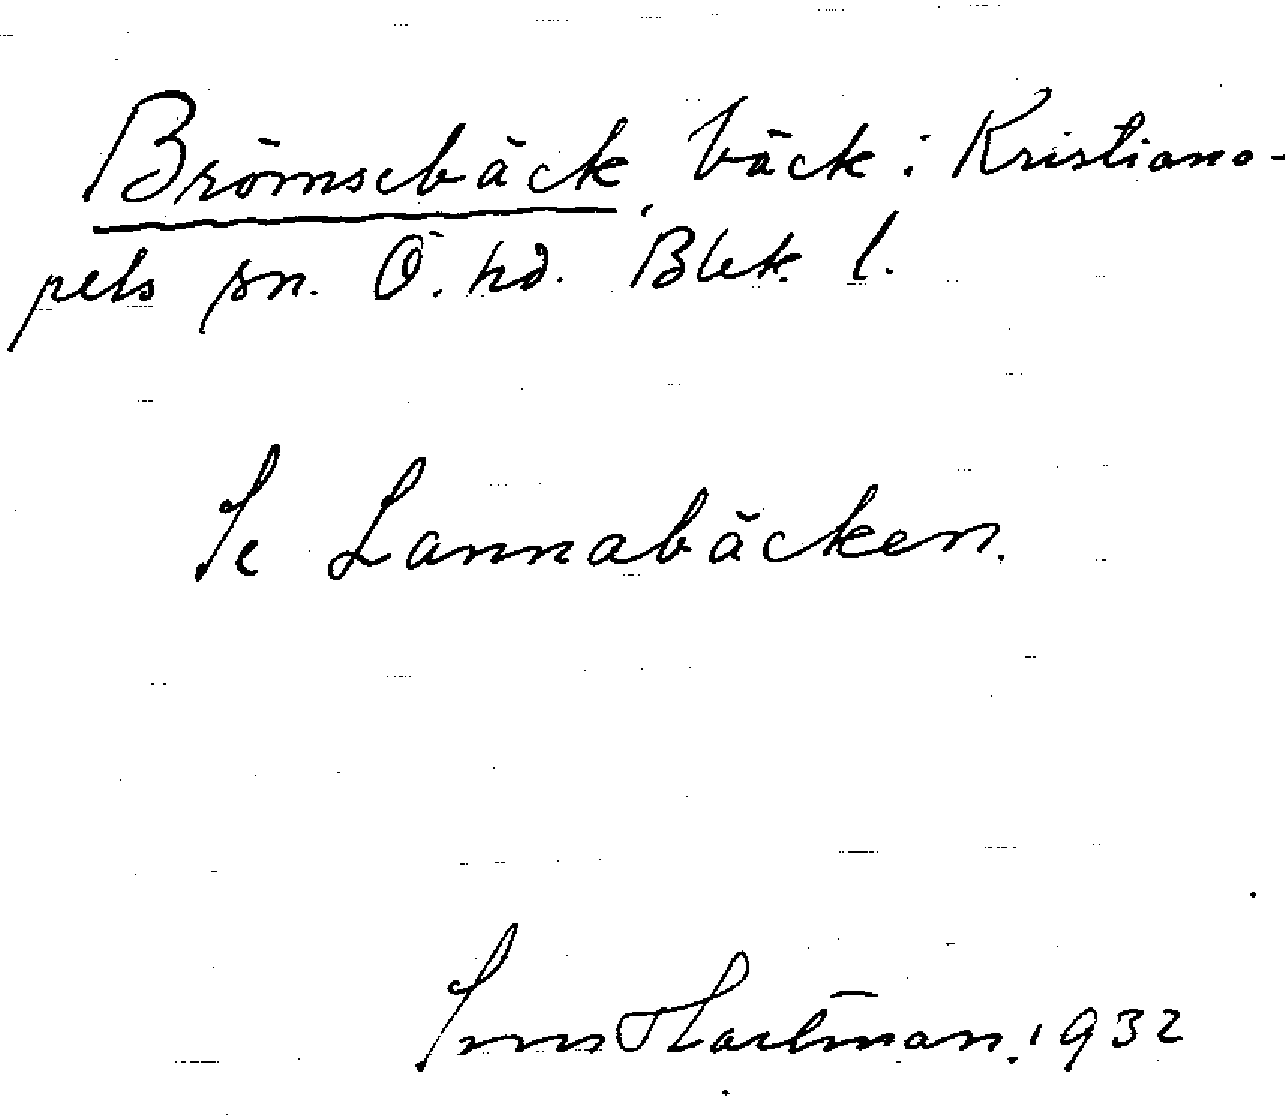 Brömsebäck, bäck i Kristiano-
pels sn. Ö. hd. Blek. l.
Se Lannabäcken.
Hartman. 1932